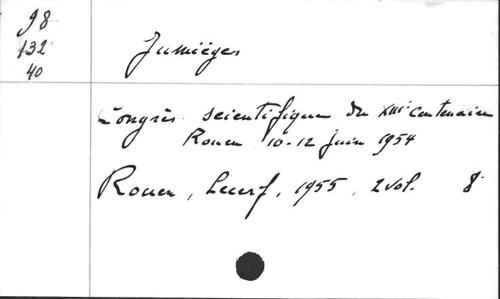 98
132
40
Jumièges
Congrès scientifique du XIIIe centenaire
Rouen 10-12 juin 1954
Rouen, Lecerf, 1955, 2 vol. 8°